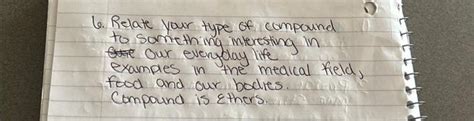 6. Relate your type of compound
to something interesting in
our everyday life
examples in the medical field,
food and our bodies.
Compound is Ethers.